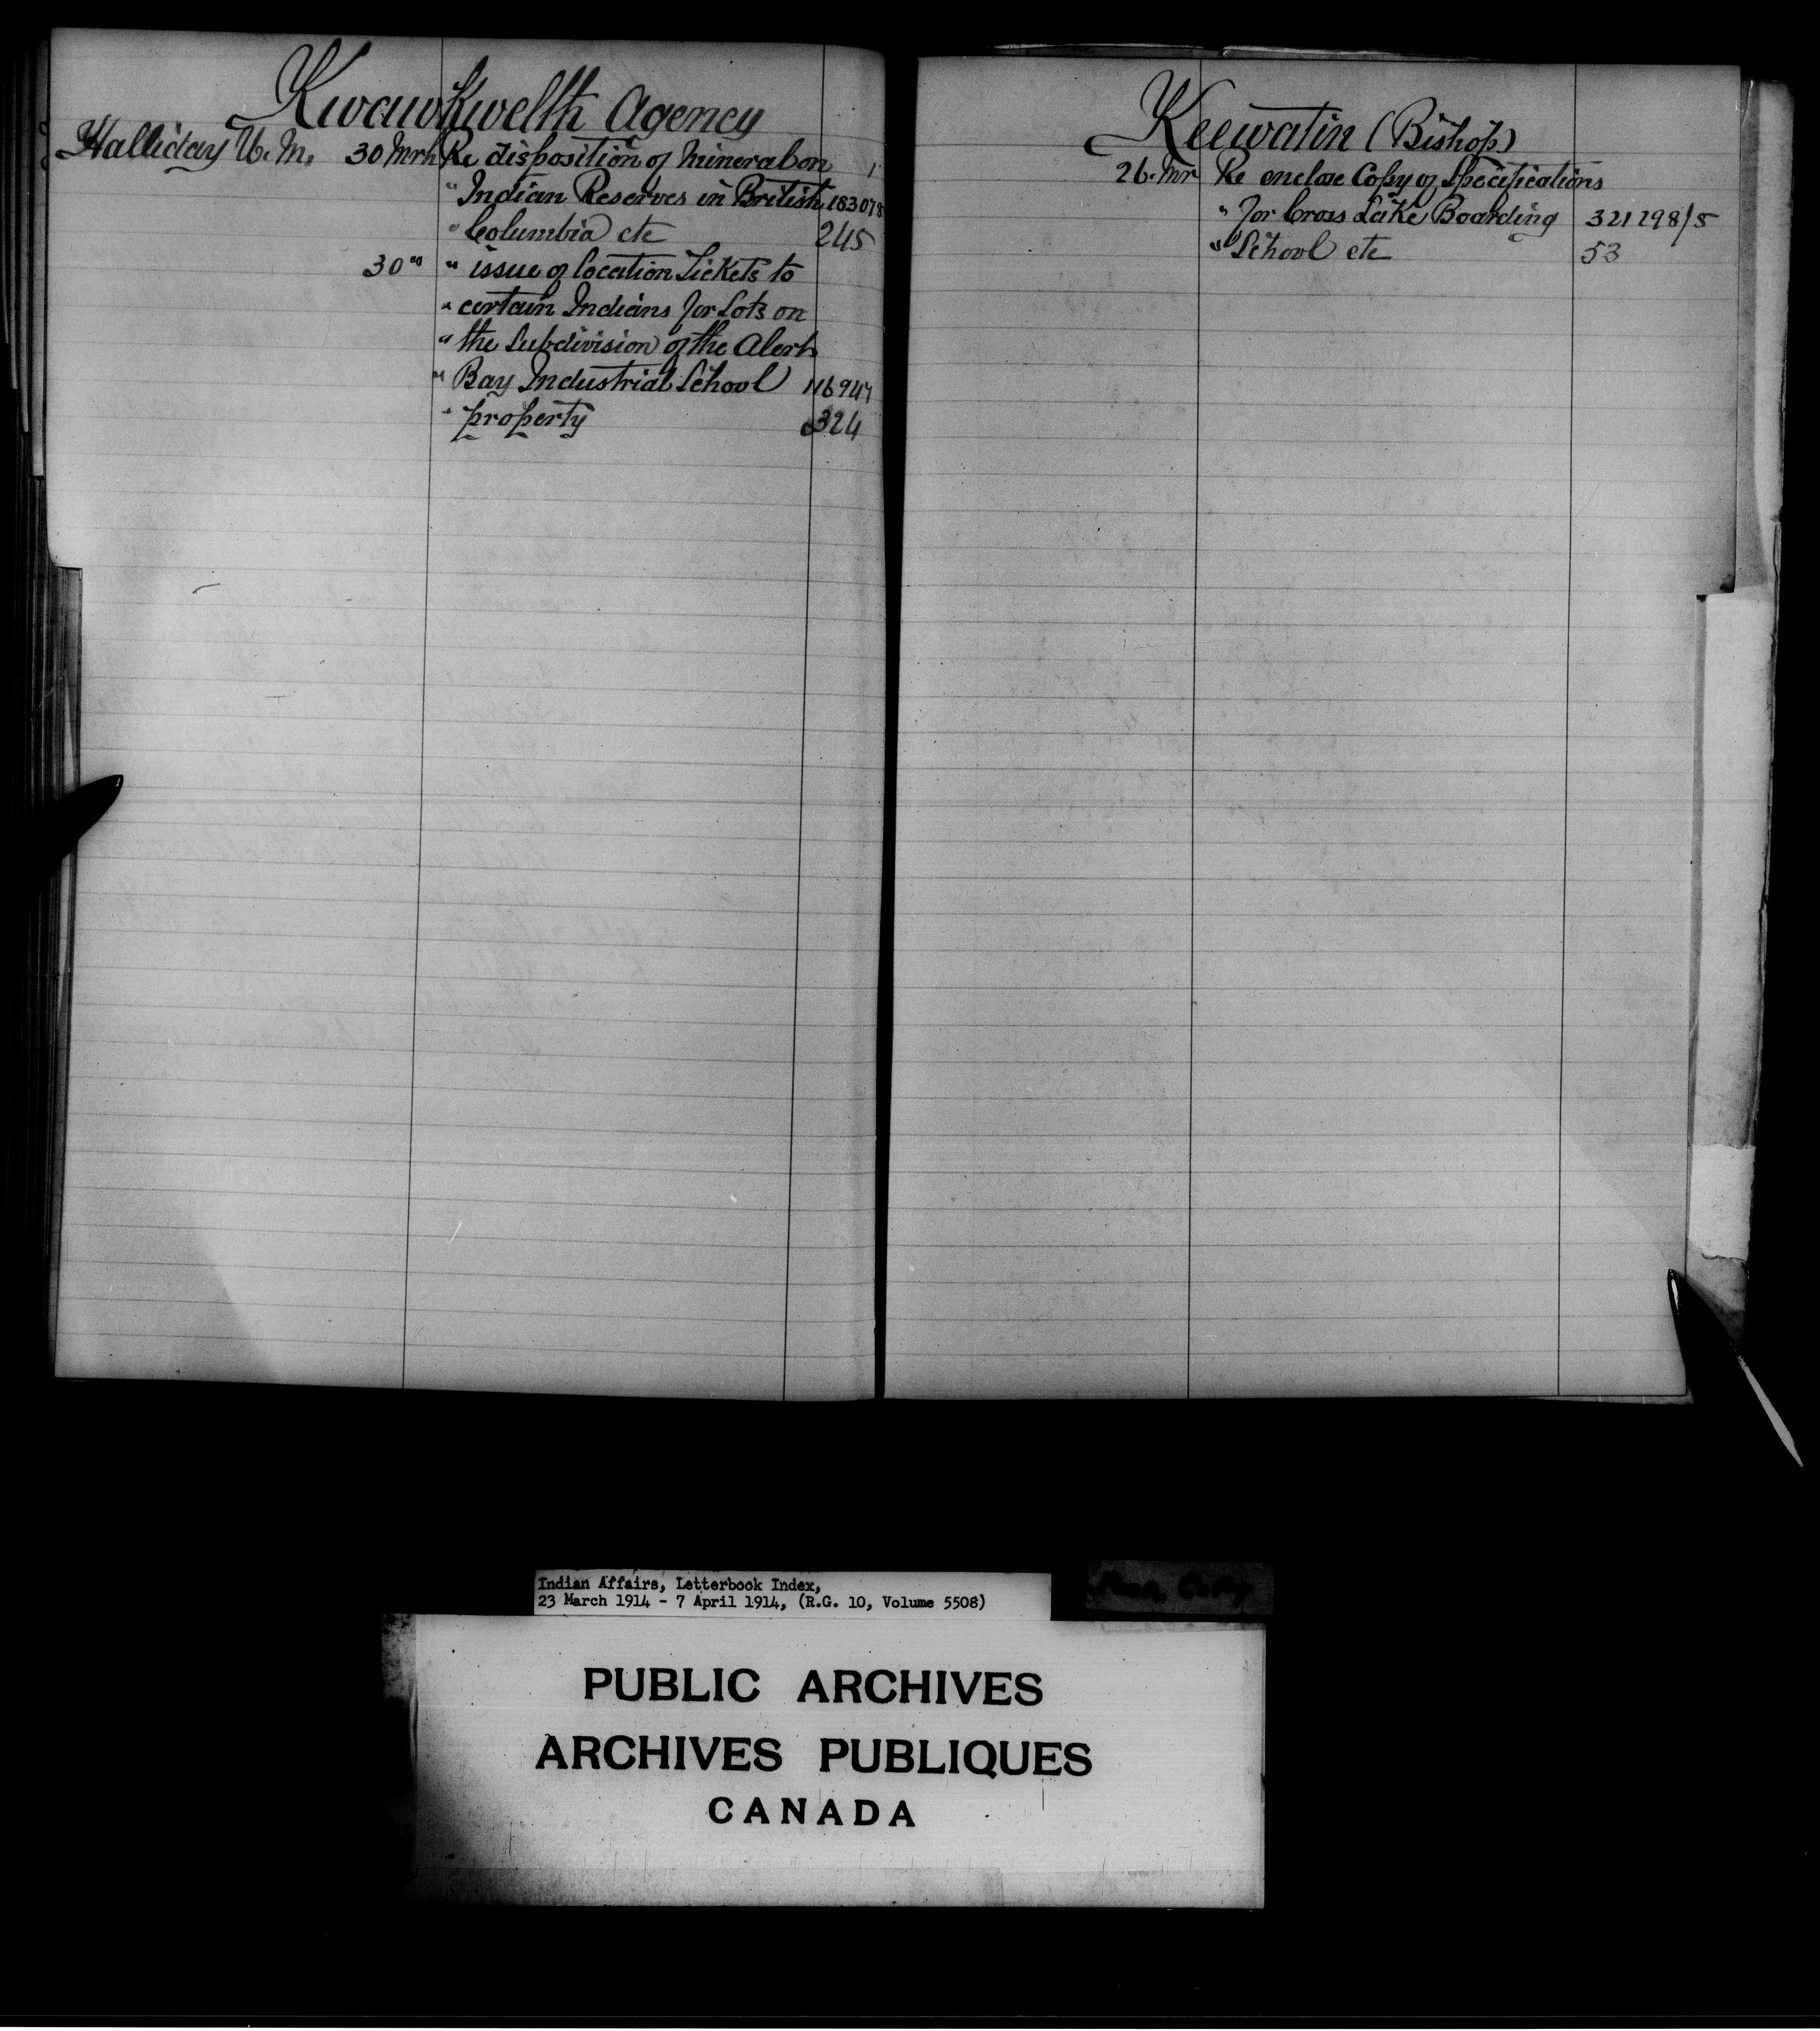 Kwawkwelth Agency
Halliday W. M. 30 Mrh Re disposition of mineral on 1
" Indian Reserves in British 183078
" Columbia etc 245
30 " " issue of location Tickets to
" certain Indians for Lots on
" the Subdivision of the Alert
" Bay Industrial School 116944
" property 324
Keewatin (Bishop)
26. Mr Re enclose Copy of Specifications
" for Cross Lake Boarding 321298/5
" School etc 53
Indian Affairs, Letterbook Index,
23 March 1914 - 7 April 1914, (R.G. 10, Volume 5508)
PUBLIC ARCHIVES
ARCHIVES PUBLIQUES
CANADA